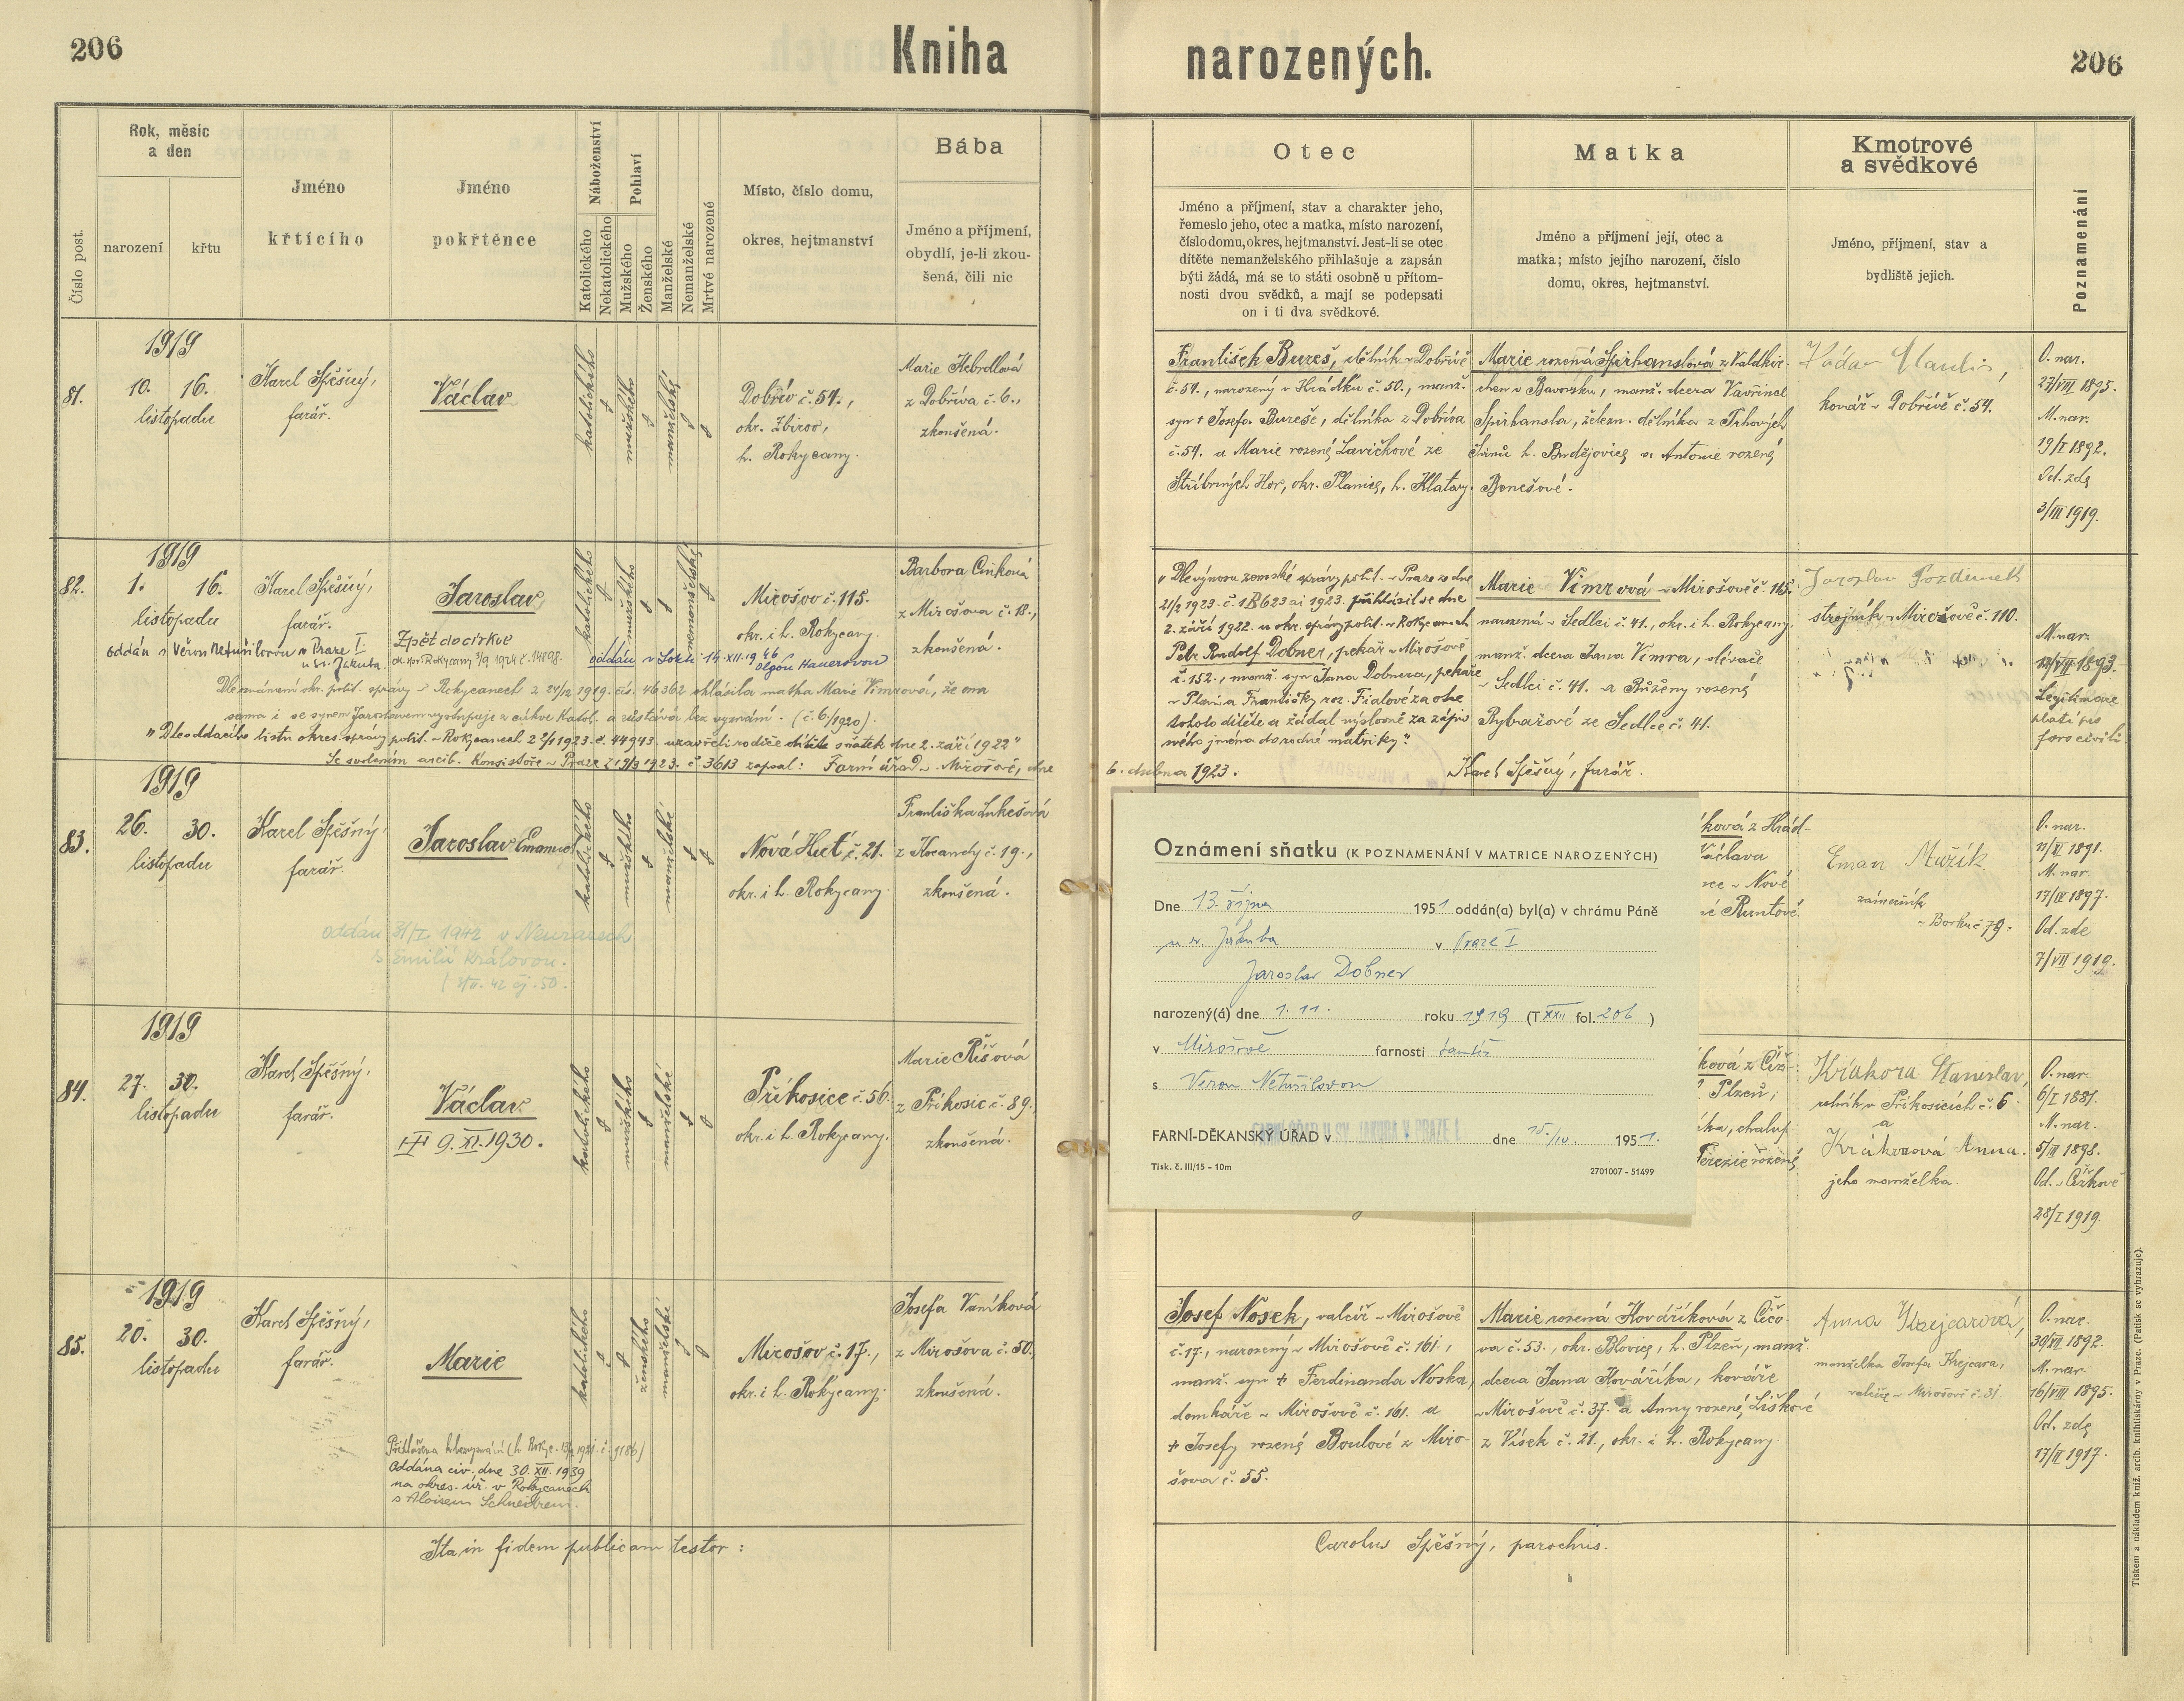 206
Kniha
narozených.
206
Číslo post.
Rok, měsíc
a den
narození
křtu
Jméno
křtícího
Jméno
pokřtěnce
Náboženství
Katolického
Nekatolického
Pohlaví
Mužského
Ženského
Manželské
Nemanželské
Mrtvé narozené
Místo, číslo domu,
okres, hejtmanství
Bába
Jméno a příjmení,
obydlí, je-li zkou-
šená, čili nic
Otec
Jméno a příjmení, stav a charakter jeho,
řemeslo jeho, otec a matka, místo narození,
číslo domu, okres, hejtmanství. Jest-li se otec
dítěte nemanželského přihlašuje a zapsán
býti žádá, má se to státi osobně u přítom-
nosti dvou svědků, a mají se podepsati
on i ti dva svědkové.
Matka
Jméno a příjmení její, otec a
matka; místo jejího narození, číslo
domu, okres, hejtmanství.
Kmotrové
a svědkové
Jméno, příjmení, stav a
bydliště jejich.
Poznamenání
81.
1919
10. 16.
listopadu
Karel Spěšný,
farář.
Václav
katolického
mužského
manželské
Dobřív č. 54.,
okr. Zbirov,
h. Rokycany.
Marie Hebrdlová
z Dobříva č. 6.,
zkoušená.
František Bureš, dělník v Dobřívě
č. 54., narozený v Hrádku č. 50., manž.
syn † Josefa Bureše, dělníka z Dobříva
č. 54. a Marie rozené Lavičkové ze
Stříbrných Hor, okr. Planice, h. Klatovy.
Marie rozená Spirhanslová z Valdkir-
chen v Bavorsku, manž. dcera Vavřince
Spirhansla, železn. dělníka z Trhových
Svinů h. Budějovice a Antonie rozené
Benešové.
Václav Maulis,
kovář v Dobřívě č. 54.
O. nar.
27/VII 1895.
M. nar.
19/I 1892.
Od. zde
3/III 1919.
82.
1919
1. 16.
listopadu
Karel Spěšný,
farář.
oddán s Věrou Netušilovou v Praze I
u sv. Jakuba.
Jaroslav
Zpět do církve
ok. spr. Rokycany 3/9 1924 č. 14898.
katolického
mužského
nemanželské
oddán v Lokti 14. XII. 1946
Olgou Hauerovou
Mirošov č. 115.
okr. i h. Rokycany.
Barbora Cinková
z Mirošova č. 18.,
zkoušená.
Dle oznámení okr. polit. správy v Rokycanech z 24/12 1919. čís. 46362 ohlásila matka Marie Vimrová, že ona
sama i se synem Jaroslavem vystupuje z církve Katol. a zůstává bez vyznání. (č. 6/1920).
"Dle oddacího listu okres. správy polit. v Rokycanech 2 2/1 1923. č. 44943. uzavřeli rodiče dítěte sňatek dne 2. září 1922"
Se svolením arcib. Konsistoře v Praze z 19/3 1923. č. 3613 zapsal: Farní úřad v Mirošově, dne
6. dubna 1923.
Karel Spěšný, farář.
"Dle výnosu zemské správy polit. v Praze ze dne
21/2 1923. č. 1B 623 ai 1923. přihlásil se dne
2. září 1922. u okr. správy polit. v Rokycanech
Petr Rudolf Dobner, pekař v Mirošově
č. 152., manž. syn Jana Dobnera, pekaře
v Plani a Františky roz. Fialové za otce
tohoto dítěte a žádal výslovně za zápis
svého jména do rodné matriky."
Marie Vimrová v Mirošově č. 115.
narozená v Sedlci č. 41., okr. i h. Rokycany,
manž. dcera Jana Vimra, slévače
v Sedlci č. 41. a Růženy rozené
Rybařové ze Sedlce č. 41.
Jaroslav
strojník v Mirošově č. 110.
M. nar.
12/VII 1893.
Legitimace
platí pro
foro civili.
83.
1919
26. 30.
listopadu
Karel Spěšný,
farář.
Jaroslav Emanuel
oddán 31/I. 1942 v Neurazech
s Emilií Královou.
(3/II. 42 čj. 50.
katolického
mužského
manželské
Nová Huť č. 21.
okr. i h. Rokycany.
Františka Lukešová
z Kocandy č. 19.,
zkoušená.
ková z Hrád-
Václava
v Nové
Runtové.
Eman Mužík
zámečník
v Borku č. 79.
O. nar.
11/VI 1891.
M. nar.
17/IV 1897.
Od. zde
7/VII 1919.
Oznámení sňatku (K POZNAMENÁNÍ V MATRICE NAROZENÝCH)
Dne 13. října 1951 oddán(a) byl(a) v chrámu Páně
u sv. Jakuba v Praze I
Jaroslav Dobner
narozený(á) dne 1. 11. roku 1919 (T XXII fol. 206 )
v Mirošově farnosti tamtéž
s Věrou Netušilovou
FARNÍ-DĚKANSKÝ ÚŘAD v FARNÍ ÚŘAD U SV. JAKUBA V PRAZE I. dne 15./10. 1951.
Tisk. č. III/15 – 10m
2701007 – 51499
84.
1919
27. 30.
listopadu
Karel Spěšný,
farář.
Václav
† 9. XI. 1930.
katolického
mužského
manželské
Příkosice č. 56.
okr. i h. Rokycany.
Marie Říšová
z Příkosic č. 89.,
zkoušená.
ková z Čiž-
Plzeň;
chalup-
Terezie rozené
Krákora Stanislav,
rolník v Příkosicích č. 6
a
Krákorová Anna.
jeho manželka.
O. nar.
6/I 1881.
M. nar.
5/III 1898.
Od. v Čížkově
28/I 1919.
85.
1919
20. 30.
listopadu
Karel Spěšný,
farář.
Marie
Oddána civ. dne 30. XII. 1939
na okres. úř. v Rokycanech
s Aloisem Schneidrem.
katolického
ženského
manželské
Mirošov č. 17.,
okr. i h. Rokycany.
Josefa Vaníková
z Mirošova č. 50.
zkoušená.
Josef Nosek, valcíř v Mirošově
č. 17., narozený v Mirošově č. 161,
manž. syn † Ferdinanda Noska,
domkáře v Mirošově č. 161. a
† Josefy rozené Boulové z Miro-
šova č. 55.
Marie rozená Kovaříková z Čičo-
va č. 53., okr. Blovice, h. Plzeň, manž.
dcera Jana Kováříka, kováře
v Mirošově č. 37. a Anny rozené Liškové
z Vísek č. 21., okr. i h. Rokycany.
Anna Krejcarová,
manželka Josefa Krejcara,
valcíře v Mirošově č. 31.
O. nar.
30/VII 1892.
M. nar.
16/VIII 1895.
Od. zde
17/II 1917.
Ita in fidem publicam testor:
Carolus Spěšný, parochus.
Tiskem a nákladem kníž. arcib. knihtiskárny v Praze. (Patisk se vyhrazuje).